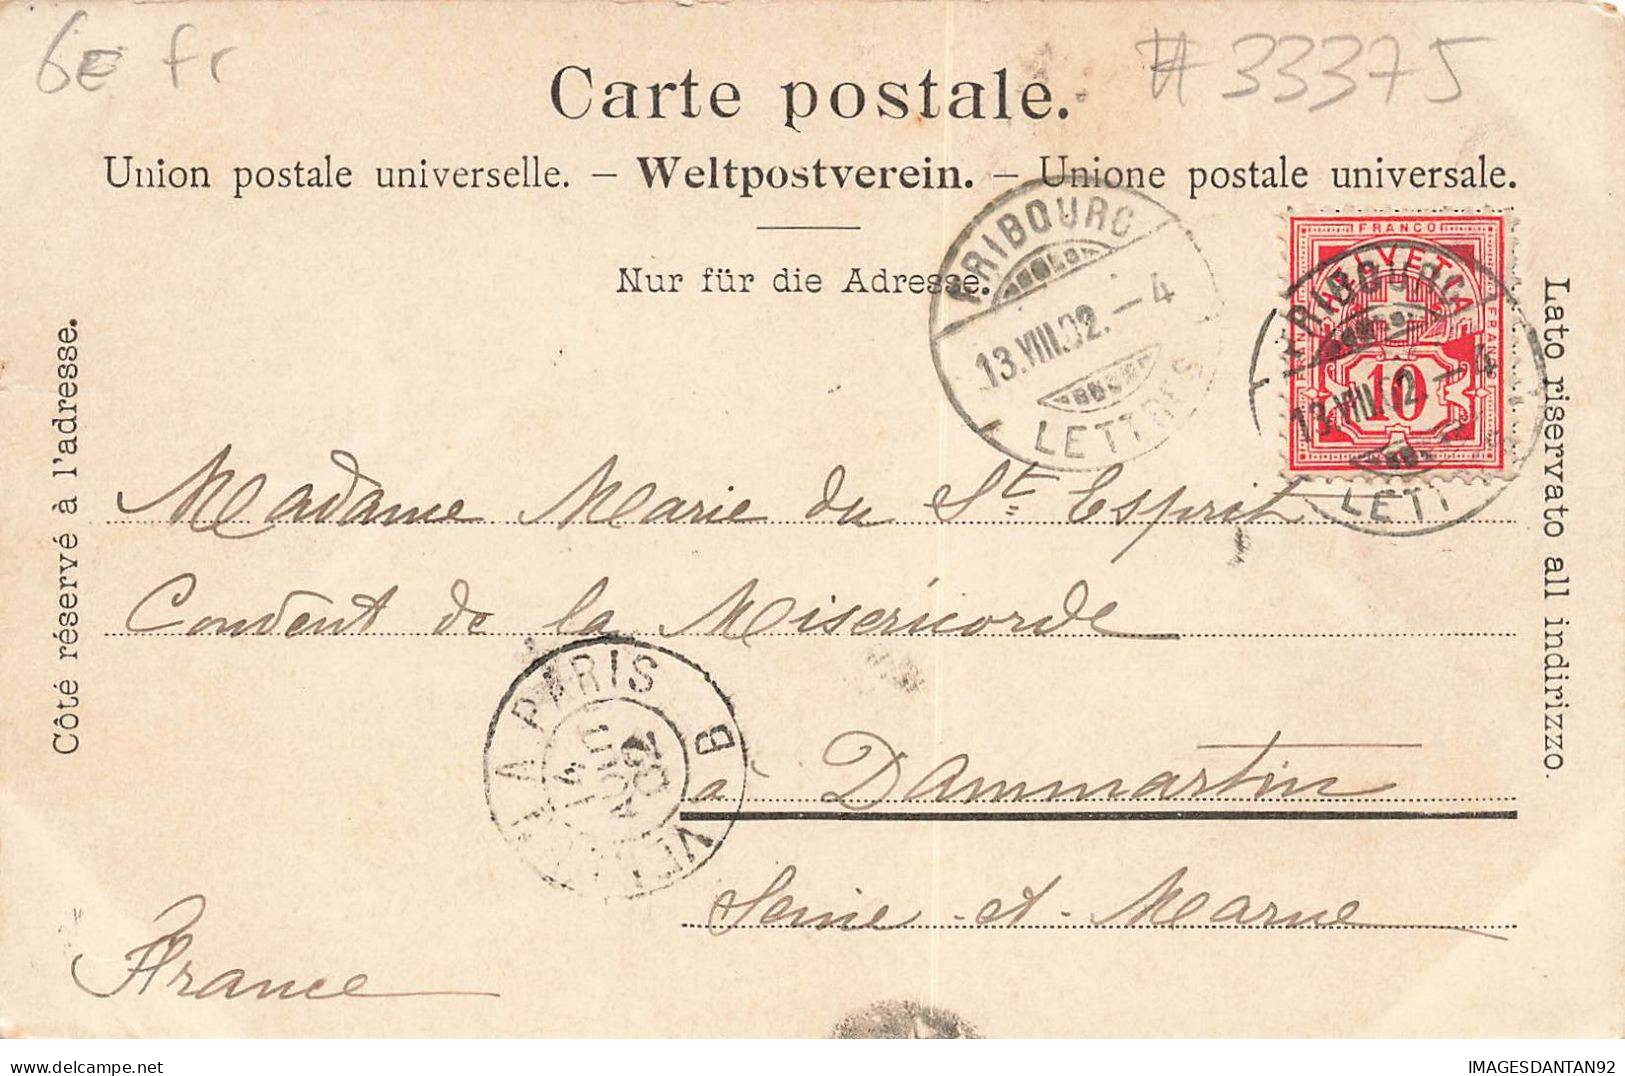 6E fr
# 33375
Carte postale.
Union postale universelle. – Weltpostverein. – Unione postale universale.
Nur für die Adresse.
Côté réservé à l'adresse.
Lato riservato all indirizzo.
FRIBOURG
13.VIII.02.–4
LETTRES
FRANCO
HELVETIA
FRANCO
FRANCO
10
FRIBOURG
13.VIII.02.–4
LETTRES
Madame Marie du St. Esprit
Couvent de la Miséricorde
à Dammartin
Seine-et-Marne
France
A PARIS B
AOUT
02
IMAGESDANTAN92